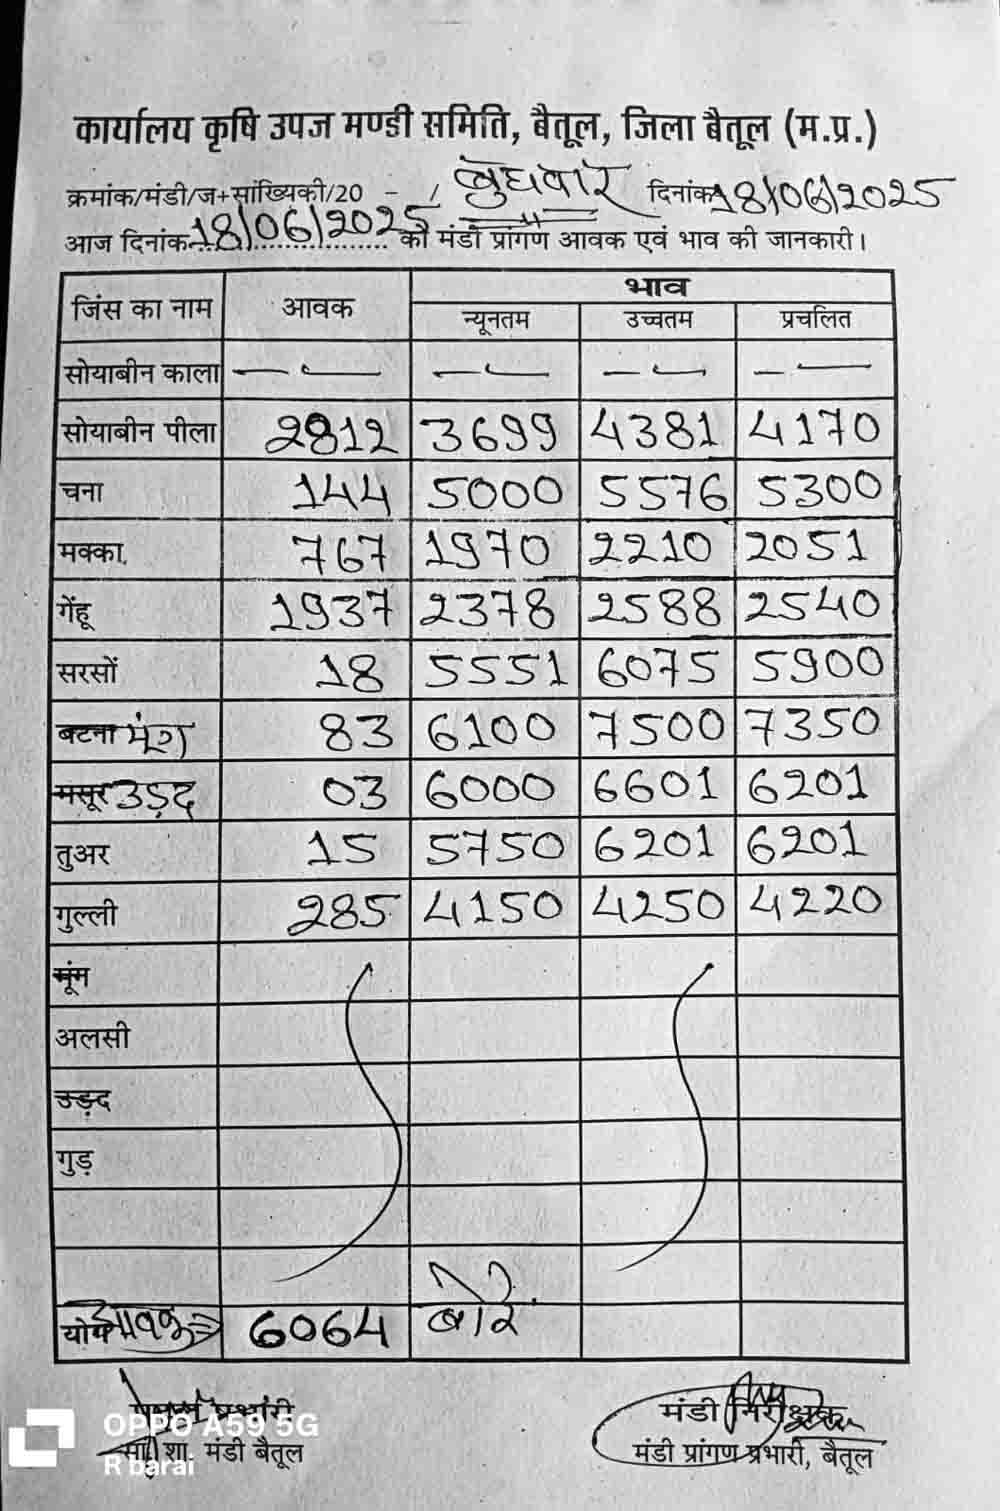 कार्यालय कृषि उपज मण्डी समिति, बैतूल, जिला बैतूल (म.प्र.)
क्रमांक/मंडी/ज+सांख्यिकी/20 - / बुधवार दिनांक 18/06/2025
आज दिनांक 18/06/2025 को मंडी प्रांगण आवक एवं भाव की जानकारी।
जिंस का नाम आवक भाव
न्यूनतम उच्चतम प्रचलित
सोयाबीन काला — — — — — — — —
सोयाबीन पीला 2812 3699 4381 4170
चना 144 5000 5576 5300
मक्का 767 1970 2210 2051
गेंहू 1937 2378 2588 2540
सरसों 18 5551 6075 5900
बटना मूंग 83 6100 7500 7350
मसूर उड़द 03 6000 6601 6201
तुअर 15 5750 6201 6201
गुल्ली 285 4150 4250 4220
मूंग
अलसी
उड़द
गुड़
योग आवक 6064 बोरे
प्रभारी मंडी निरीक्षक
सां. शा. मंडी बैतूल मंडी प्रांगण प्रभारी, बैतूल
OPPO A59 5G
R barai